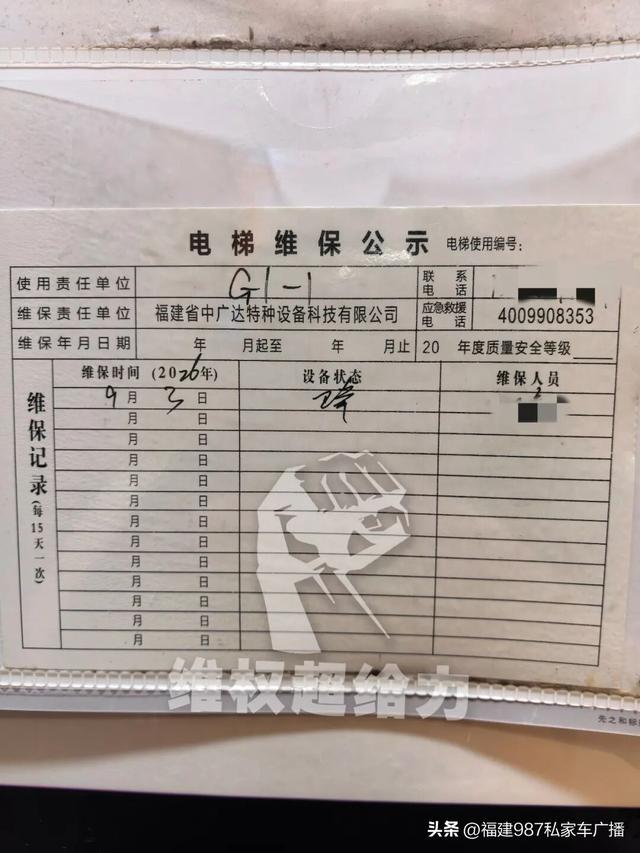 电梯维保公示 电梯使用编号:
使用责任单位 G1-1 联系电话
维保责任单位 福建省中广达特种设备科技有限公司 应急救援电话 4009908353
维保年月日期 年 月起至 年 月止 20 年度质量安全等级
维保记录(每15天一次) 维保时间 (2026年) 设备状态 维保人员
9月3日
月 日
月 日
月 日
月 日
月 日
月 日
月 日
月 日
月 日
月 日
月 日
月 日
维权超给力
先之和标
头条 @福建987私家车广播